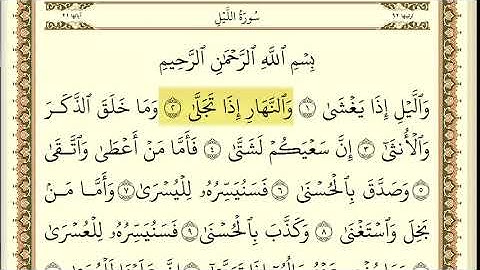 سُورَةُ اللَّيْلِ
بِسْمِ ٱللَّهِ ٱلرَّحْمَٰنِ ٱلرَّحِيمِ
وَٱلَّيْلِ إِذَا يَغْشَىٰ ١ وَٱلنَّهَارِ إِذَا تَجَلَّىٰ ٢ وَمَا خَلَقَ ٱلذَّكَرَ
وَٱلْأُنثَىٰٓ ٣ إِنَّ سَعْيَكُمْ لَشَتَّىٰ ٤ فَأَمَّا مَنْ أَعْطَىٰ وَٱتَّقَىٰ
٥ وَصَدَّقَ بِٱلْحُسْنَىٰ ٦ فَسَنُيَسِّرُهُۥ لِلْيُسْرَىٰ ٧ وَأَمَّا مَنۢ
بَخِلَ وَٱسْتَغْنَىٰ ٨ وَكَذَّبَ بِٱلْحُسْنَىٰ ٩ فَسَنُيَسِّرُهُۥ لِلْعُسْرَىٰ